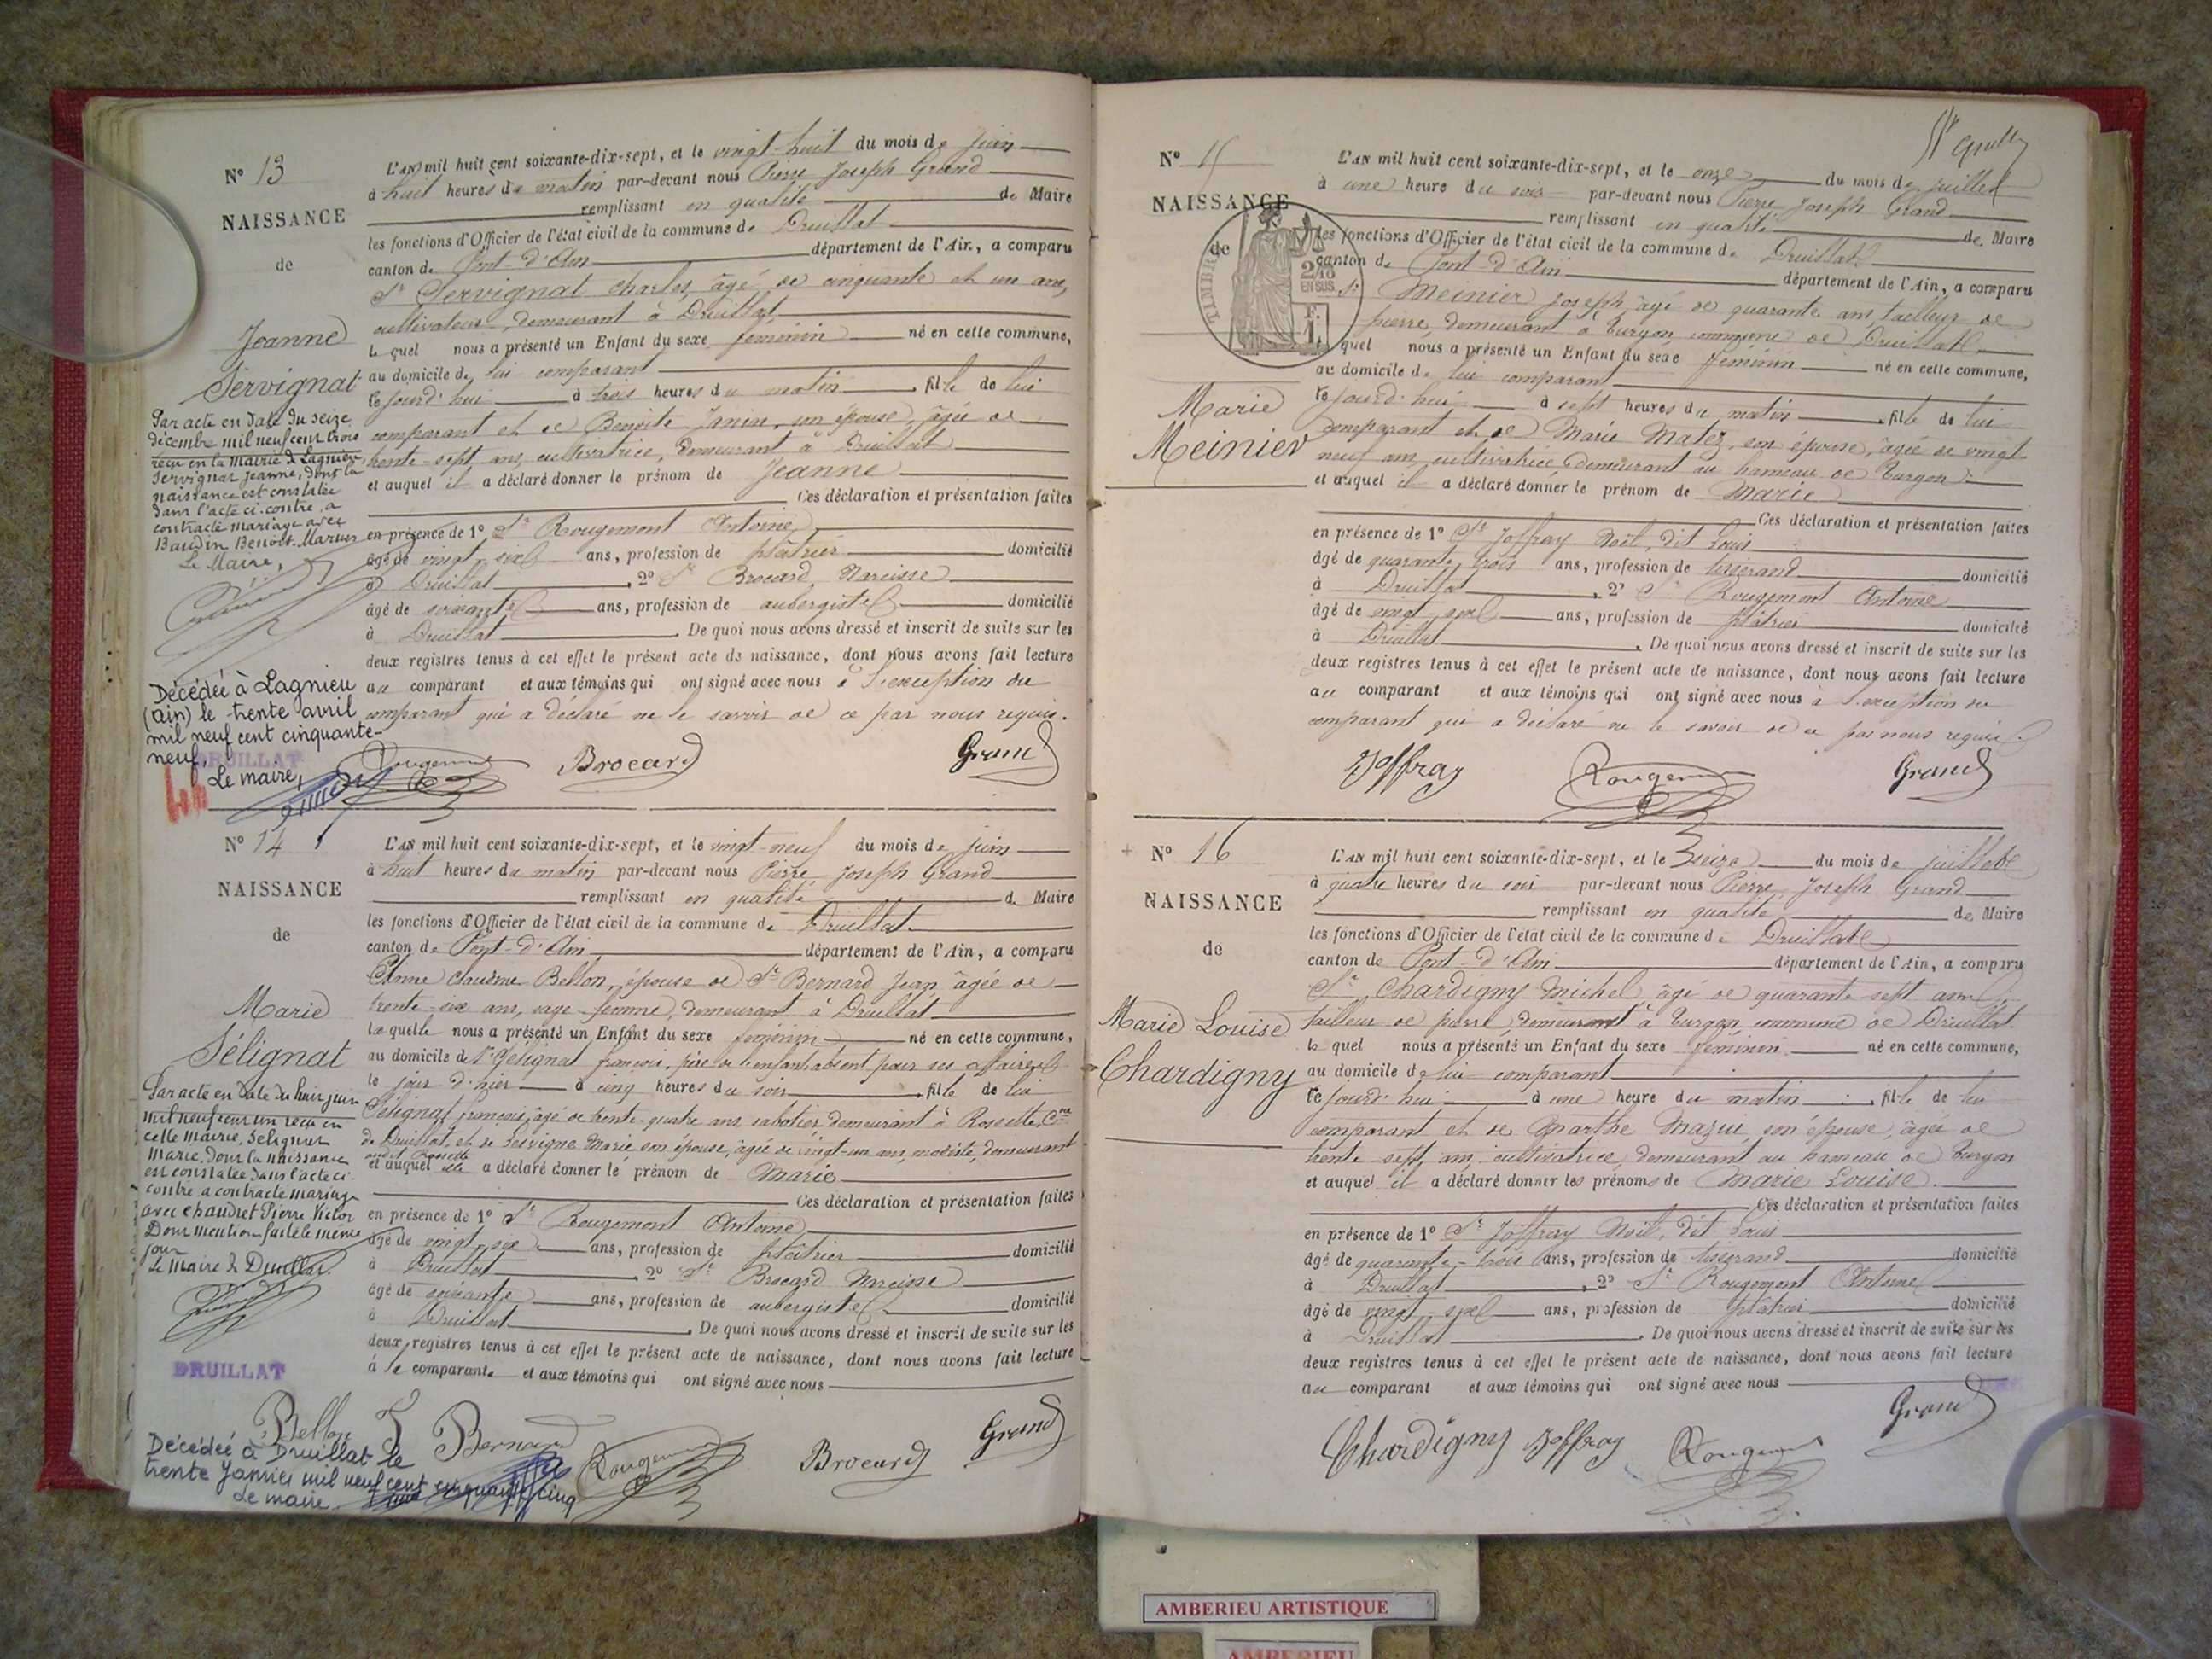 N° 13
NAISSANCE
de
Jeanne
Servignat
Par acte en date du seize
décembre mil neuf cent trois
reçu en la Mairie de Lagnieu
Servignat Jeanne, dont la
naissance est constatée
dans l'acte ci-contre a
contracté mariage avec
Baudin Benoit-Marius
Le Maire,
Décédée à Lagnieu
(ain) le trente avril
mil neuf cent cinquante-
neuf
DRUILLAT
Le maire,
L'AN mil huit cent soixante-dix-sept, et le vingt-huit du mois de juin
à huit heures du matin par-devant nous Pierre Joseph Grand
remplissant en qualité de Maire
les fonctions d'Officier de l'état civil de la commune de Druillat
canton de Pont-d'Ain département de l'Ain, a comparu
Sr Servignat Charles, âgé de cinquante et un ans,
cultivateur, demeurant à Druillat
lequel nous a présenté un Enfant du sexe féminin né en cette commune,
au domicile de lui comparant
ce jourd'hui à trois heures du matin fille de lui
comparant et de Benoite Janin, son épouse, âgée de
trente-sept ans, cultivatrice, demeurant à Druillat
et auquel il a déclaré donner le prénom de Jeanne
Ces déclaration et présentation faites
en présence de 1° Sr Rougemont Antoine
âgé de vingt-six ans, profession de plâtrier domicilié
à Druillat, 2° Sr Brocard, Narcisse
âgé de soixante ans, profession de aubergiste domicilié
à Druillat. De quoi nous avons dressé et inscrit de suite sur les
deux registres tenus à cet effet le présent acte de naissance, dont nous avons fait lecture
au comparant et aux témoins qui ont signé avec nous à l'exception du
comparant qui a déclaré ne le savoir de ce par nous requis.
Rougemont Brocard Grand
N° 14
NAISSANCE
de
Marie
Sélignat
Par acte en date du huit juin
mil neuf cent un reçu en
cette mairie, Selignat
Marie, dont la naissance
est constatée dans l'acte ci-
contre a contracté mariage
avec Chaudret Pierre Victor
Dont mention faite le même
jour
Le Maire de Druillat.
DRUILLAT
L'AN mil huit cent soixante-dix-sept, et le vingt-neuf du mois de juin
à huit heures du matin par-devant nous Pierre Joseph Grand
remplissant en qualité de Maire
les fonctions d'Officier de l'état civil de la commune de Druillat
canton de Pont-d'Ain département de l'Ain, a comparu
Anne Claudine Bellon, épouse de Sr Bernard Jean âgée de
trente-six ans, sage-femme, demeurant à Druillat
laquelle nous a présenté un Enfant du sexe féminin né en cette commune,
au domicile de Sr Sélignat françois, père de l'enfant absent pour ses affaires
le jour d'hier à cinq heures du soir fille de lui
Sélignat françois, âgé de trente-quatre ans, sabotier, demeurant à Rossette, Cne
de Druillat, et de Servigne Marie son épouse, âgée de vingt-un ans, modiste, demeurant
audit Rossette
et auquel elle a déclaré donner le prénom de Marie
Ces déclaration et présentation faites
en présence de 1° Sr Rougemont Antoine
âgé de vingt-six ans, profession de plâtrier domicilié
à Druillat 2° Sr Brocard Narcisse
âgé de soixante ans, profession de aubergiste domicilié
à Druillat. De quoi nous avons dressé et inscrit de suite sur les
deux registres tenus à cet effet le présent acte de naissance, dont nous avons fait lecture
à la comparante et aux témoins qui ont signé avec nous
Bellon F Bernard Rougemont Brocard Grand
Décédée à Druillat le
trente Janvier mil neuf cent cinquante cinq
Le maire
N° 15
NAISSANCE
de
TIMBRE
2/10
EN SUS
F.
1
Marie
Meinier
L'AN mil huit cent soixante-dix-sept, et le onze du mois de juillet
à une heure du soir par-devant nous Pierre Joseph Grand
remplissant en qualité de Maire
les fonctions d'Officier de l'état civil de la commune de Druillat
canton de Pont-d'Ain département de l'Ain, a comparu
Sr Meinier Joseph âgé de quarante ans, tailleur de
pierre, demeurant à Turgon, commune de Druillat
lequel nous a présenté un Enfant du sexe féminin né en cette commune,
au domicile de lui comparant
ce jourd'hui à sept heures du matin fille de lui
comparant et de Marie Matez, son épouse, âgée de vingt
neuf ans, cultivatrice demeurant au hameau de Turgon
et auquel il a déclaré donner le prénom de Marie
Ces déclaration et présentation faites
en présence de 1° Sr Joffray Noël, dit Louis
âgé de quarante trois ans, profession de tisserand domicilié
à Druillat, 2° Sr Rougemont Antoine
âgé de vingt-six ans, profession de plâtrier domicilié
à Druillat. De quoi nous avons dressé et inscrit de suite sur les
deux registres tenus à cet effet le présent acte de naissance, dont nous avons fait lecture
au comparant et aux témoins qui ont signé avec nous à l'exception du
comparant qui a déclaré ne le savoir de ce par nous requis
Joffray Rougemont Grand
N° 16
NAISSANCE
de
Marie Louise
Chardigny
L'AN mil huit cent soixante-dix-sept, et le seize du mois de juillet
à quatre heures du soir par-devant nous Pierre Joseph Grand
remplissant en qualité de Maire
les fonctions d'Officier de l'état civil de la commune de Druillat
canton de Pont-d'Ain département de l'Ain, a comparu
Sr Chardigny Michel âgé de quarante sept ans,
tailleur de pierre, demeurant à Turgon commune de Druillat
lequel nous a présenté un Enfant du sexe féminin né en cette commune,
au domicile de lui comparant
ce jourd'hui à une heure du matin fille de lui
comparant et de Marthe Mazui, son épouse, âgée de
trente-sept ans, cultivatrice, demeurant au hameau de Turgon
et auquel il a déclaré donner les prénoms de Marie Louise
Ces déclaration et présentation faites
en présence de 1° Sr Joffray Noël, dit Louis
âgé de quarante-trois ans, profession de tisserand domicilié
à Druillat, 2° Sr Rougemont Antoine
âgé de vingt-six ans, profession de plâtrier domicilié
à Druillat. De quoi nous avons dressé et inscrit de suite sur les
deux registres tenus à cet effet le présent acte de naissance, dont nous avons fait lecture
au comparant et aux témoins qui ont signé avec nous
Chardigny Joffray Rougemont Grand
AMBERIEU ARTISTIQUE
AMBERIEU